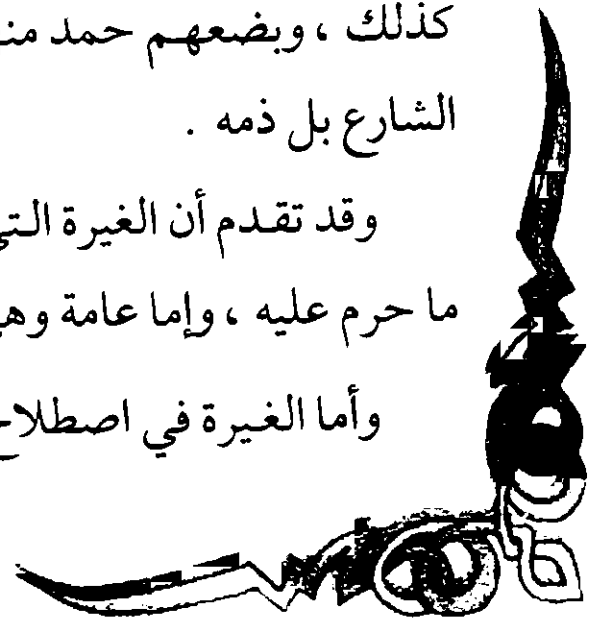 كذلك ، وبضعهم حمد منـ
الشارع بل ذمه .
وقد تقدم أن الغيرة التي
ما حرم عليه ، وإما عامة وهي
وأما الغيرة في اصطلاح